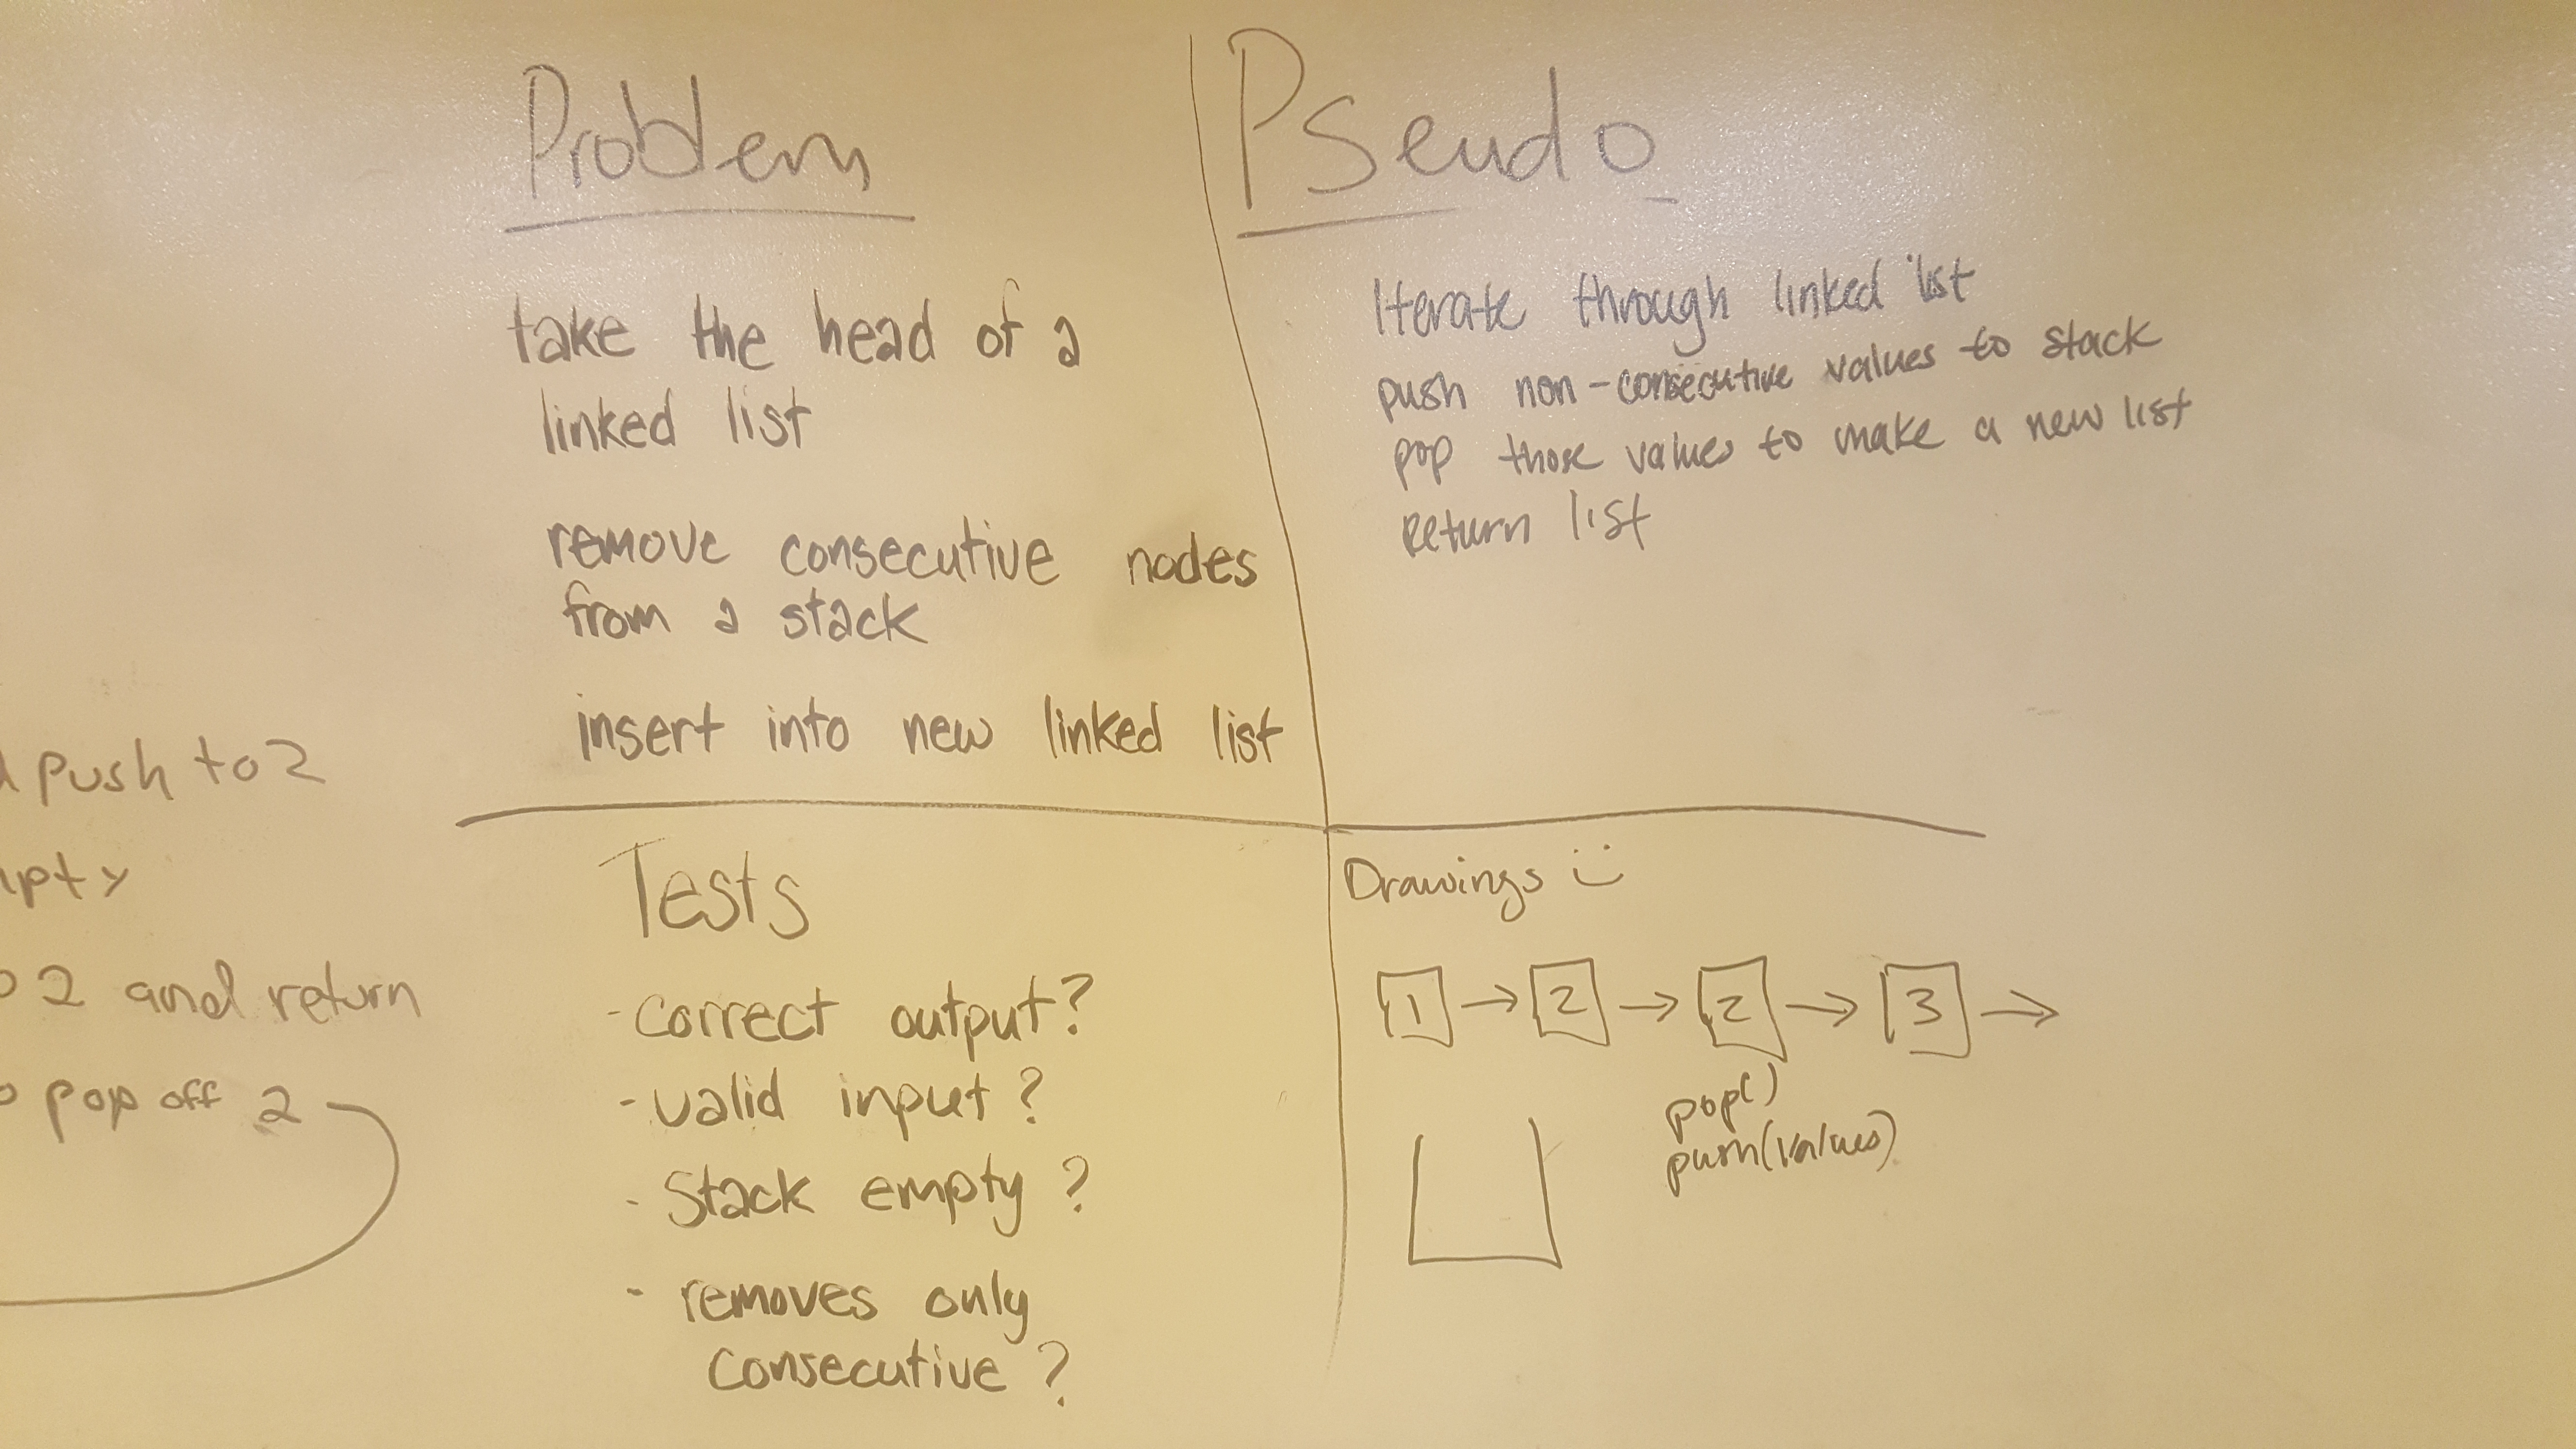 Problem
take the head of a
linked list
remove consecutive nodes
from a stack
insert into new linked list
Pseudo
Iterate through linked list
push non-consecutive values to stack
pop those values to make a new list
Return list
push to 2
2 and return
pop off 2
Tests
- Correct output?
- valid input?
- Stack empty?
- removes only
consecutive?
Drawings :)
1 → 2 → 2 → 3 →
pop()
push(values)